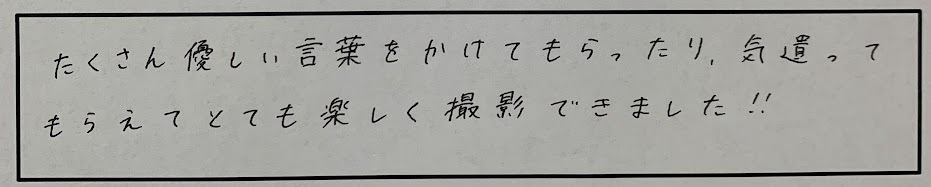 たくさん優しい言葉をかけてもらったり、気遣って
もらえてとても楽しく撮影できました!!